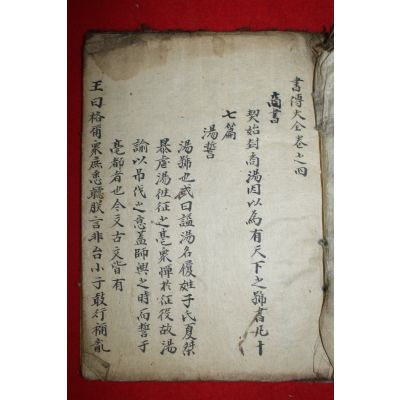 書傳大全卷之四
商書
契始封商湯因以為有天下之號書凡十
七篇
湯誓
湯號也或曰諡湯名履姓子氏夏桀
暴虐湯往征之亳衆憚於征役故湯
諭以吊伐之意蓋師興之時而誓于
亳都者也今文古文皆有
王曰格爾衆庶悉聽朕言非台小子敢行稱亂